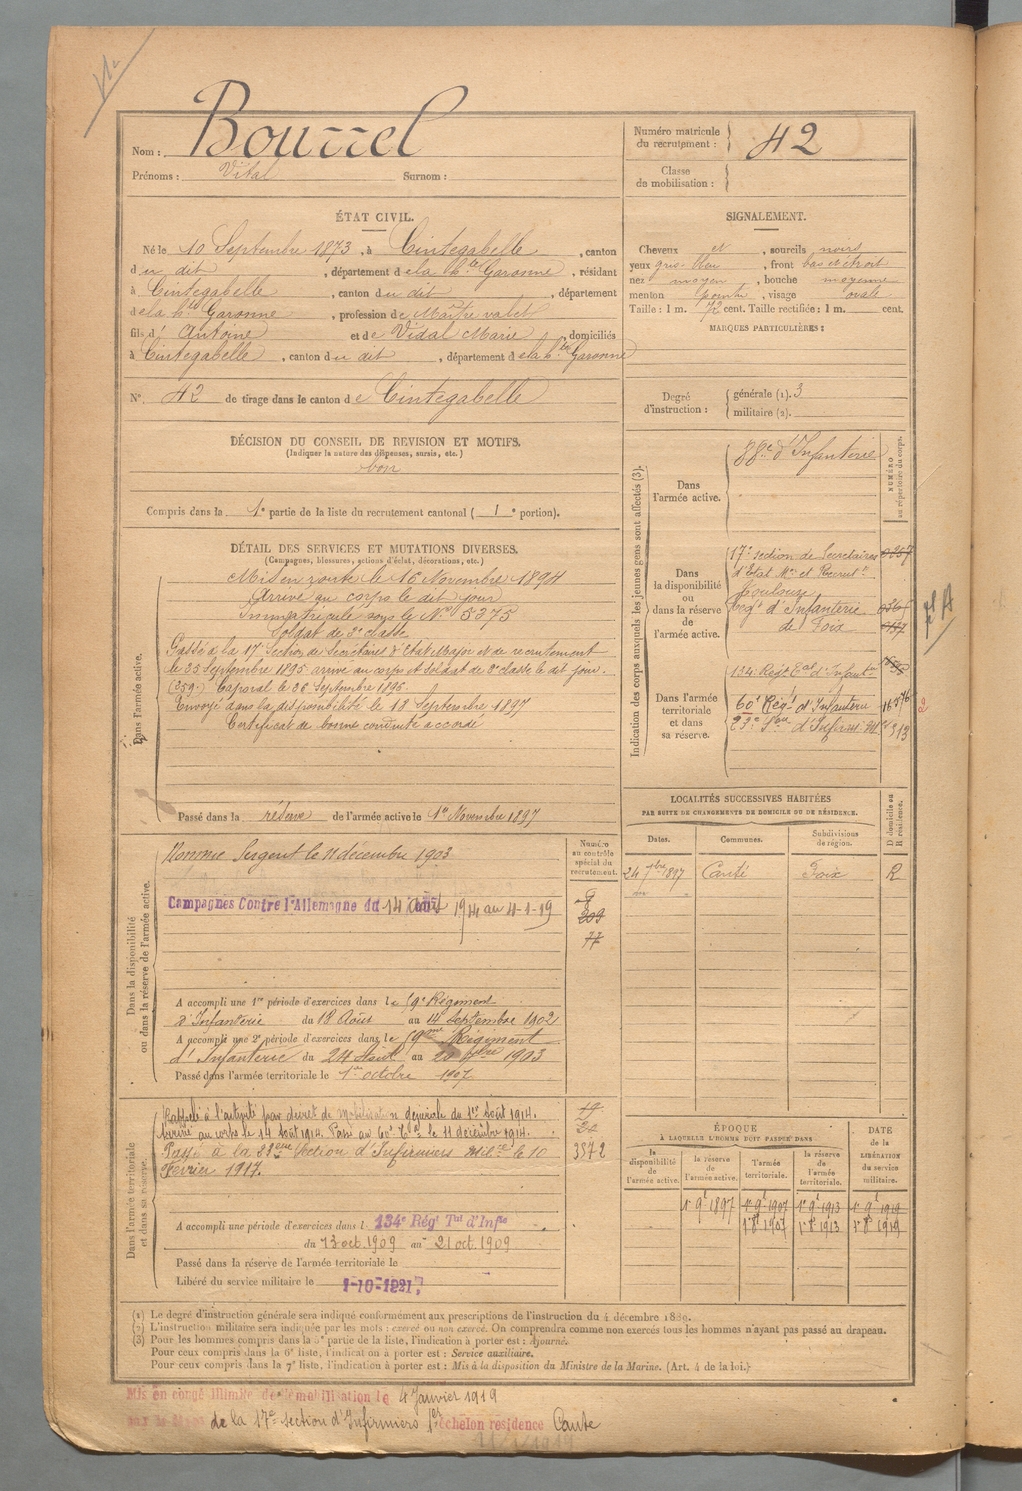 Nom : Bourrel
Prénoms : Vital Surnom :
Numéro matricule du recrutement : 42
Classe de mobilisation :
ÉTAT CIVIL.
Né le 10 Septembre 1873, à Cintegabelle, canton
du dit, département de la hte Garonne, résidant
à Cintegabelle, canton du dit, département
de la hte Garonne, profession de Maître valet
fils d'Antoine et de Vidal Marie, domiciliés
à Cintegabelle, canton du dit, département de la hte Garonne
N° 42 de tirage dans le canton de Cintegabelle
SIGNALEMENT.
Cheveux et, sourcils noirs
yeux gris-bleu, front bas et étroit
nez moyen, bouche moyenne
menton pointu, visage ovale
Taille : 1 m. 72 cent. Taille rectifiée : 1 m. cent.
MARQUES PARTICULIÈRES :
Degré d'instruction : générale (1). 3
militaire (2).
DÉCISION DU CONSEIL DE REVISION ET MOTIFS.
(Indiquer la nature des dispenses, sursis, etc.)
bon
Compris dans la 1e partie de la liste du recrutement cantonal ( 1e portion).
DÉTAIL DES SERVICES ET MUTATIONS DIVERSES.
(Campagnes, blessures, actions d'éclat, décorations, etc.)
Dans l'armée active.
Mis en route le 16 Novembre 1894
Arrivé au corps le dit jour
Immatriculé sous le No 5375
Soldat de 2e classe
Passé à la 17e Section de Secrétaires d'Etat Major et de recrutement
le 25 Septembre 1895 arrivé au corps et Soldat de 2e classe le dit jour.
(259.) Caporal le 26 Septembre 1896.
Envoyé dans la disponibilité le 18 Septembre 1897
Certificat de bonne conduite accordé
Passé dans la réserve de l'armée active le 1er Novembre 1897
Indication des corps auxquels les jeunes gens sont affectés (3).
NUMÉRO au répertoire du corps.
Dans l'armée active.
88e d'Infanterie
Dans la disponibilité ou dans la réserve de l'armée active.
17e section de Secrétaires 0257
d'Etat Mor et Recrutt
Toulouse
Regt d'Infanterie
de Foix
Dans l'armée territoriale et dans sa réserve.
134e Régt Eal d'Infantie
60e Régt d'Infanterie
23e Son d'Infirm. Mre 313
LOCALITÉS SUCCESSIVES HABITÉES
PAR SUITE DE CHANGEMENTS DE DOMICILE OU DE RÉSIDENCE.
D domicile ou R résidence.
Dates. Communes. Subdivisions de région.
24 7bre 1897 Canté Foix R
Dans la disponibilité ou dans la réserve de l'armée active.
Numéro au contrôle spécial du recrutement.
Nommé Sergent le 11 décembre 1903
Campagnes Contre l'Allemagne du 14 Août 1914 au 4-1-19
209
77
A accompli une 1re période d'exercices dans le 59e Régiment
d'Infanterie du 18 Août au 14 Septembre 1902
A accompli une 2e période d'exercices dans le 59me Régiment
d'Infanterie du 24 Août au 20 7bre 1903
Passé dans l'armée territoriale le 1er octobre 1907
Dans l'armée territoriale et dans sa réserve.
Rappelé à l'activité par décret de mobilisation générale du 1er Août 1914.
Arrivé au corps le 14 Août 1914. Passé au 60e le 11 décembre 1914.
Passé à la 23eme Section d'Infirmiers Milres le 10
Février 1917.
3572
A accompli une période d'exercices dans l 134e Régt Tal d'Infie
du 13 oct. 1909 au 21 oct. 1909
Passé dans la réserve de l'armée territoriale le
Libéré du service militaire le 1-10-1921
ÉPOQUE
À LAQUELLE L'HOMME DOIT PASSER DANS
DATE de la LIBÉRATION du service militaire.
la disponibilité de l'armée active. la réserve de l'armée active. l'armée territoriale. la réserve de l'armée territoriale.
1er 9e 1897 1er 9e 1907 1er 9e 1913 1er 9e 1919
1er 8e 1907 1er 8e 1913 1er 8e 1919
(1) Le degré d'instruction générale sera indiqué conformément aux prescriptions de l'instruction du 4 décembre 1889.
(2) L'instruction militaire sera indiquée par les mots : exercé ou non exercé. On comprendra comme non exercés tous les hommes n'ayant pas passé au drapeau.
(3) Pour les hommes compris dans la 5e partie de la liste, l'indication à porter est : Ajourné.
Pour ceux compris dans la 6e liste, l'indication à porter est : Service auxiliaire.
Pour ceux compris dans la 7e liste, l'indication à porter est : Mis à la disposition du Ministre de la Marine. (Art. 4 de la loi.)
Mis en congé illimité de démobilisation le 4 Janvier 1919
de la 17e section d'Infirmiers 1er échelon résidence Canté